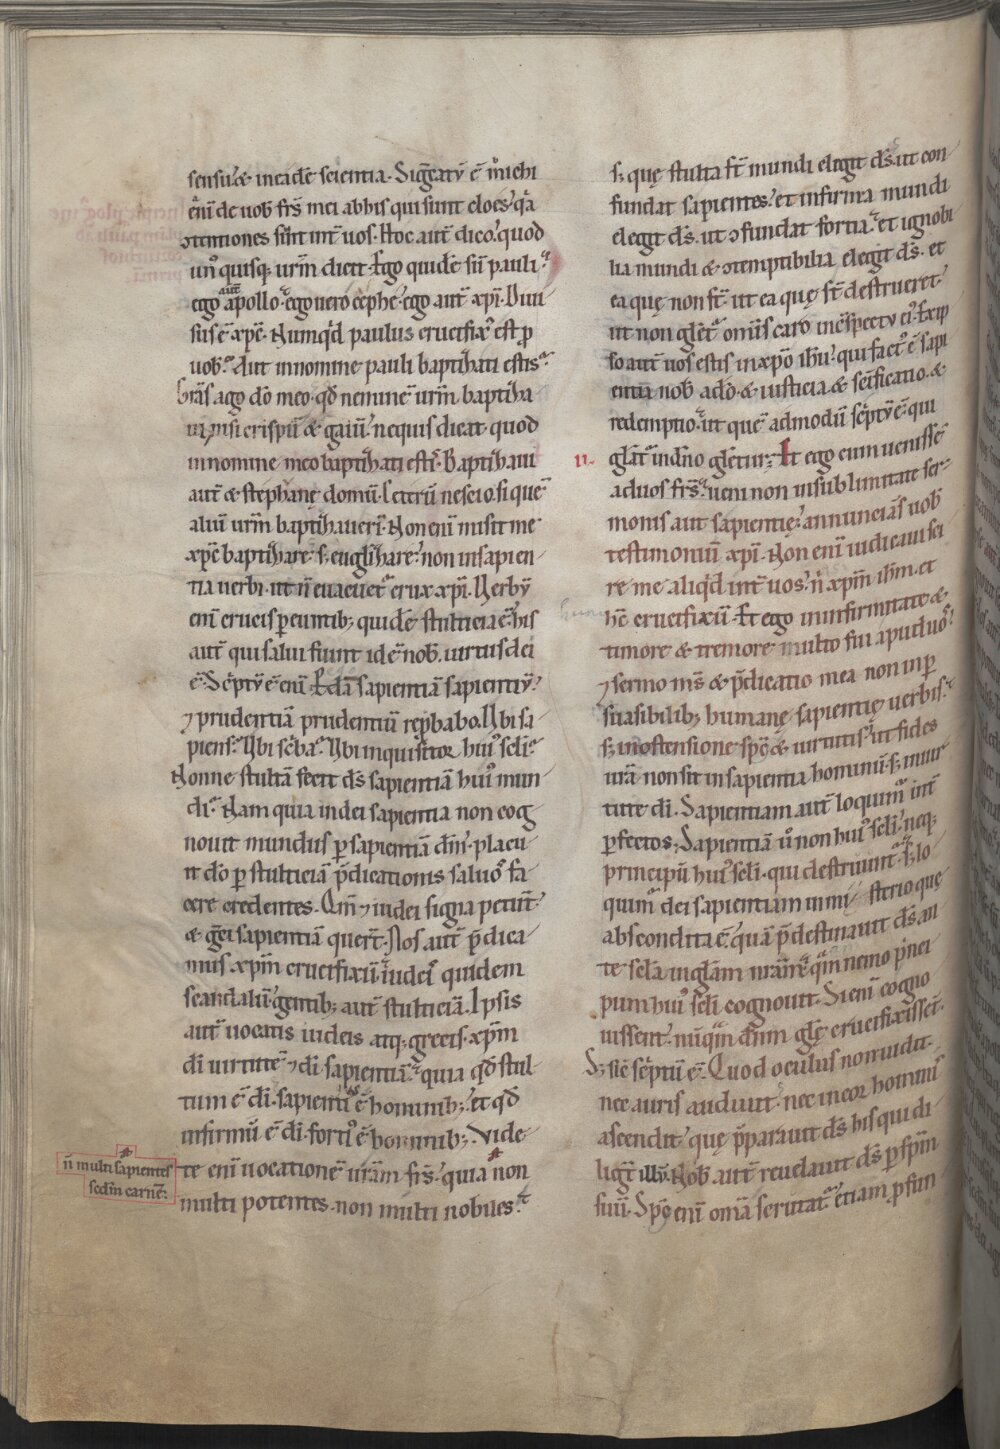 sensu. & in eadē scientia. Significatū ē m̄ ichi
enī de uob̄ frs̄ mei ab his qui sunt cloes. qa
ↄtentiones sūt int̄ uos. Hoc aut̄ dico. quod
un'quisq; urm̄ dicit. Ego quidē sū pauli.
ego aut̄ apollo. ego uero cephe. ego aut̄ xpi. Diui
sus ē xpc̄. Numqd paulus crucifix' est p
uob̄. Aut in nomine pauli baptizati estis.
Gr̄as ago dō meo. qd̄ neminē urm̄ baptiza
ui. nisi crispū & gaiū. ne quis dicat quod
in nomine meo baptizati estis. Baptizaui
aut̄ & stephanę domū. Ceterū nescio. si quē
aliū urm̄ baptizauerī. Non enī misit me
xpc̄ baptizare. s; euglizare. non in sapien
tia uerbi. ut n̄ euacuet̄ crux xpi. Uerbū
enī crucis peuntib; quidē stulticia ē. his
aut̄ qui salui fiunt id ē nob̄. uirtus dei
ē. Scptū ē enī. Pdā sapientiā sapientiū.
⁊ prudentiā prudentiū repbabo. Ubi sa
piens. Ubi scba. Ubi inquisitor hui' scli.
Nonne stultā fecit ds̄ sapientiā hui' mun
di. Nam quia in dei sapientia non cog
nouit mundus p sapientiā dm̄. placu
it dō p stulticiā pdicationis saluos fa
cere credentes. Qm̄ ⁊ iudei signa petūt.
& greci sapientiā querūt. Nos aut̄ pdica
mus xpm̄ crucifixū. iudeis quidem
scandalū. gentib; aut̄ stulticiā. Ipsis
aut̄ uocatis iudeis atq; grecis. xpm̄
dī uirtutē ⁊ dī sapientiā. quia qd̄ stul
tum ē dī. sapienti' ē hominib;. et qd̄
infirmū ē dī. forti' ē hominib;. Vide
te enī uocationē urām frs̄. quia non
multi potentes. non multi nobiles.
n̄ multi sapientes
scdm̄ carnē.
s; quę stulta st̄ mundi elegit ds̄. ut con
fundat sapientes. et infirma mundi
elegit ds̄. ut ↄfundat fortia. et ignobi
lia mundi & ↄtemptibilia elegit ds̄. et
ea quę non st̄. ut ea quę st̄ destrueret.
ut non glet̄ omīs caro in cspectu ei'. Ex ip
so aut̄ uos estis in xpo ihu. qui fact' ē sapi
entia nob̄ a dō. & iusticia & scificatio. &
redemptio. ut quē admodū scptū ē. qui
II. glat̄ in dn̄o glet̄ur. Et ego cum uenissē
ad uos frs̄. ueni non in sublimitate ser
monis aut sapientię. annuncians uob̄
testimoniū xpi. Non enī iudicaui sci
re me aliqd int̄ uos. n̄ xpm ihm. et
hc̄ crucifixū. Et ego in infirmitate &
timore & tremore multo fui apud uos.
⁊ sermo ms̄ & pdicatio mea non in p
suasibilib; humanę sapientię uerbis.
s; in ostensione spc & uirtutis. ut fides
urā non sit in sapientia hominū. s; in uir
tute dī. Sapientiam aut̄ loquim' int̄
pfectos. Sapientiā u̇ non hui' scli. neq;
principū hui' scli. qui destruunt̄. s; lo
quim' dei sapientiam in mysterio quę
abscondita ē. quā pdestinauit ds̄ an
te scla in glam nrām. quā nemo pnci
pum hui' scli cognouit. Si enī cogno
uissent. nūqm dnm glę crucifixissent.
S; sic scptū ē. Quod oculus non uidit.
nec auris audiuit. nec in cor hominis
ascendit. quę ppara uit ds̄ his qui di
ligt̄ illū. Nob̄ aut̄ reuelauit ds̄ p spm
suū. Spc enī omā scrutat̄. etiam pfun